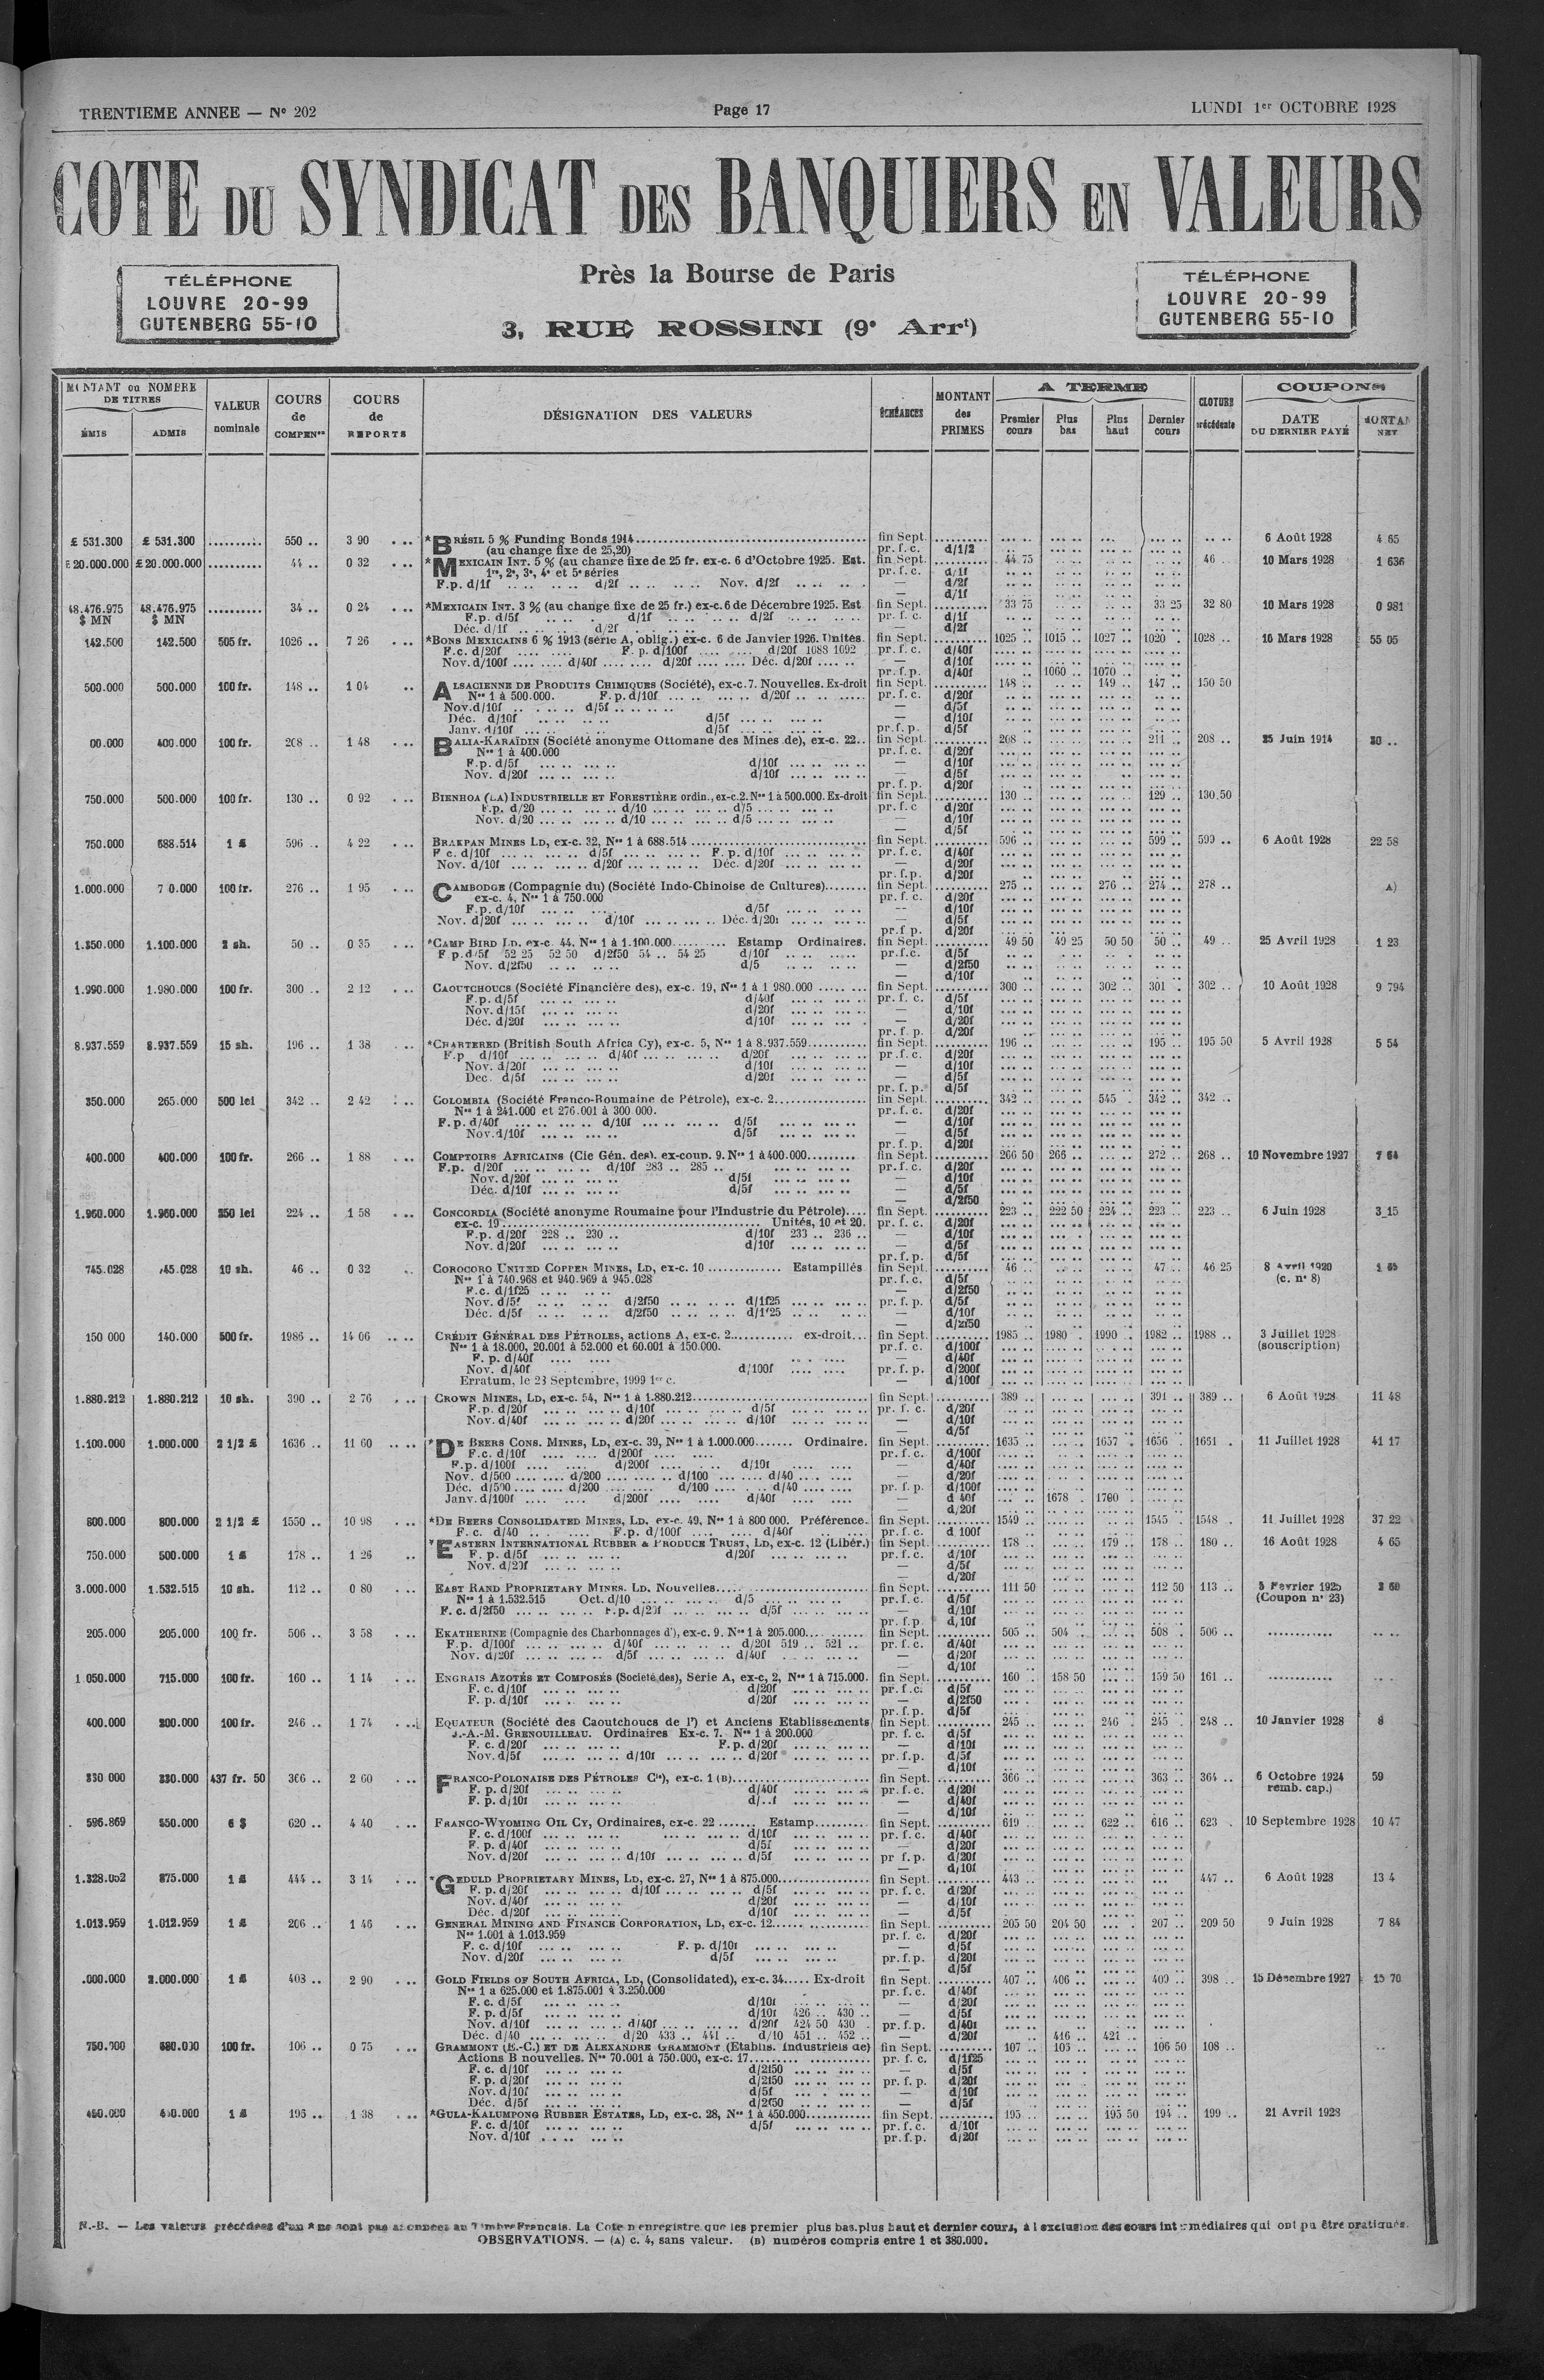 TRENTIEME ANNEE — N° 202 Page 17 LUNDI 1er OCTOBRE 1928
COTE DU SYNDICAT DES BANQUIERS EN VALEURS
TÉLÉPHONE
LOUVRE 20-99
GUTENBERG 55-10
Près la Bourse de Paris
3, RUE ROSSINI (9e Arrt)
TÉLÉPHONE
LOUVRE 20-99
GUTENBERG 55-10
MONTANT ou NOMBRE DE TITRES
ÉMIS ADMIS
VALEUR nominale
COURS de COMPENon
COURS de REPORTS
DÉSIGNATION DES VALEURS
ÉCHÉANCES
MONTANT des PRIMES
A TERME
Premier cours Plus bas Plus haut Dernier cours
CLOTURE précédente
COUPONS
DATE DU DERNIER PAYÉ
NET
£ 531.300 £ 531.300 .......... 550 .. 3 90 *BRÉSIL 5 % Funding Bonds 1914 fin Sept. 6 Août 1928 4 65
(au change fixe de 25,20) pr. f. c. d/1/2
£ 20.000.000 £ 20.000.000 .......... 44 .. 0 32 *MEXICAIN INT. 5 % (au change fixe de 25 fr. ex-c. 6 d'Octobre 1925. Est. fin Sept. 44 75 46 .. 10 Mars 1928 1 636
1re, 2e, 3e, 4e et 5e séries pr. f. c. d/1f
F.p. d/1f .. .. d/2f .. .. Nov. d/2f .. .. — d/2f
— d/1f
48.476.975 48.476.975 .......... 34 .. 0 24 *MEXICAIN INT. 3 % (au change fixe de 25 fr.) ex-c. 6 de Décembre 1925. Est fin Sept. 33 75 33 25 32 80 10 Mars 1928 0 981
$ MN $ MN F.p. d/5f .. .. d/1f .. .. d/2f .. .. pr. f. c. d/1f
Déc. d/1f .. .. d/2f .. .. — d/2f
142.500 142.500 505 fr. 1026 .. 7 26 *BONS MEXICAINS 6 % 1913 (série A, oblig.) ex-c. 6 de Janvier 1926. Unités. fin Sept. 1025 .. 1015 .. 1027 .. 1020 .. 1028 .. 10 Mars 1928 55 05
F.c. d/20f .... .... F. p. d/100f .... .... d/20f 1088 1092 pr. f. c. d/40f
Nov. d/100f .... .... d/40f .... .... d/20f .... .... Déc. d/20f .... .. — d/10f
pr. f.p. d/40f 1060 .. 1070 ..
500.000 500.000 100 fr. 148 .. 1 04 ALSACIENNE DE PRODUITS CHIMIQUES (Société), ex-c. 7. Nouvelles. Ex-droit fin Sept. 148 .. 149 .. 147 .. 150 50
Nos 1 à 500.000. F. p. d/10f ... .. d/20f .. .. pr. f. c. d/20f
Nov. d/10f .. .. d/5f .. .. — d/5f
Déc. d/10f .. .. d/5f ... .. — d/10f
Janv. d/10f ... .. d/5f ... .. pr. f. p. d/5f
00.000 400.000 100 fr. 208 .. 1 48 BALIA-KARAÏDIN (Société anonyme Ottomane des Mines de), ex-c. 22.. fin Sept. 208 .. 211 .. 208 .. 25 Juin 1914
Nos 1 à 400.000 pr. f. c. d/20f
F.p. d/5f ... .. d/10f ... .. — d/10f
Nov. d/20f ... .. d/10f ... .. — d/5f
pr. f. p. d/20f
750.000 500.000 100 fr. 130 .. 0 92 BIENHOA (LA) INDUSTRIELLE ET FORESTIÈRE ordin., ex-c. 2. Nos 1 à 500.000. Ex-droit fin Sept. 130 .. 129 .. 130.50
F.p. d/20 ... .. d/10 ... .. d/5 ... .. pr. f. c d/20f
Nov. d/20 ... .. d/10 ... .. d/5 ... .. — d/10f
— d/5f
750.000 688.514 1 £ 596 .. 4 22 BRAKPAN MINES LD, ex-c. 32, Nos 1 à 688.514 fin Sept. 596 .. 599 .. 599 .. 6 Août 1928 22 58
F c. d/10f ... .. d/5f ... .. F. p. d/10f ... .. pr. f. c. d/40f
Nov. d/10f ... .. d/20f ... .. Déc. d/20f ... .. — d/20f
pr. f.p. d/20f
1.000.000 7 0.000 100 fr. 276 .. 1 95 CAMBODGE (Compagnie du) (Société Indo-Chinoise de Cultures) fin Sept. 275 .. 276 .. 274 .. 278 .. A)
ex-c. 4, Nos 1 à 750.000 pr. f. c. d/20f
F.p. d/10f ... .. d/5f ... .. — d/10f
Nov. d/20f ... .. d/10f ... .. Déc. d/20f ... .. — d/5f
pr. f. p. d/20f
1.350.000 1.100.000 2 sh. 50 .. 0 35 *CAMP BIRD LD. ex-c. 44, Nos 1 à 1.100.000 Estamp Ordinaires. fin Sept. 49 50 49 25 50 50 50 .. 49 .. 25 Avril 1928 1 23
F.p. d/5f 52 25 52 50 d/2f50 54 .. 54 25 d/10f .. .. pr.f.c. d/5f
Nov. d/2f50 .. .. d/5 .. .. — d/2f50
— d/10f
1.990.000 1.980.000 100 fr. 300 .. 2 12 CAOUTCHOUCS (Société Financière des), ex-c. 19, Nos 1 à 1 980.000 fin Sept. 300 .. 302 .. 301 .. 302 .. 10 Août 1928 9 794
F.p. d/5f ... .. d/40f ... .. pr. f. c. d/5f
Nov. d/15f ... .. d/20f ... .. — d/10f
Déc. d/20f ... .. d/10f ... .. — d/20f
pr. f. p. d/20f
8.937.559 8.937.559 15 sh. 196 .. 1 38 *CHARTERED (British South Africa Cy), ex-c. 5, Nos 1 à 8.937.559 fin Sept. 196 .. 195 .. 195 50 5 Avril 1928 5 54
F.p d/10f ... .. d/40f ... .. d/20f ... .. pr. f. c. d/20f
Nov. d/20f ... .. d/10f ... .. — d/10f
Dec. d/5f ... .. d/20f ... .. — d/5f
pr. f. p. d/5f
350.000 265.000 500 lei 342 .. 2 42 COLOMBIA (Société Franco-Roumaine de Pétrole), ex-c. 2 fin Sept. 342 .. 545 .. 342 .. 342 ..
Nos 1 à 241.000 et 276.001 à 300 000. pr. f. c. d/20f
F.p. d/40f ... .. d/10f ... .. d/5f ... .. — d/10f
Nov. d/10f ... .. d/5f ... .. — d/5f
pr. f. p. d/20f
400.000 400.000 100 fr. 266 .. 1 88 COMPTOIRS AFRICAINS (Cie Gén. des). ex-coup. 9. Nos 1 à 400.000 fin Sept. 266 50 266 .. 272 .. 268 .. 10 Novembre 1927 7 64
F.p. d/20f ... .. d/10f 283 .. 285 .. pr. f. c. d/20f
Nov. d/20f ... .. d/5f ... .. — d/10f
Déc. d/10f ... .. d/5f ... .. — d/5f
— d/2f50
1.960.000 1.960.000 250 lei 224 .. 1 58 CONCORDIA (Société anonyme Roumaine pour l'Industrie du Pétrole) fin Sept. 223 .. 222 50 224 .. 223 .. 223 .. 6 Juin 1928 3 15
ex-c. 19 Unités, 10 et 20. pr. f. c. d/20f
F.p. d/20f 228 .. 230 .. d/10f 233 .. 236 .. — d/10f
Nov. d/20f ... .. d/10f ... .. — d/5f
pr. f. p. d/5f
745.028 745.028 10 sh. 46 .. 0 32 COROCORO UNITED COPPER MINES, LD, ex-c. 10 Estampillés fin Sept. 46 .. 47 .. 46 25 8 Avril 1920
Nos 1 à 740.968 et 940.969 à 945.028 pr. f. c. d/5f (c. n° 8)
F.c. d/1f25 .. .. — d/2f50
Nov. d/5f .. .. d/2f50 .. .. d/1f25 ... .. pr. f. p. d/5f
Déc. d/5f .. .. d/2f50 .. .. d/1f25 .. .. — d/10f
— d/2f50
150 000 140.000 500 fr. 1986 .. 14 06 CRÉDIT GÉNÉRAL DES PÉTROLES, actions A, ex-c. 2 ex-droit fin Sept. 1985 .. 1980 .. 1990 .. 1982 .. 1988 .. 3 Juillet 1928
Nos 1 à 18.000, 20.001 à 52.000 et 60.001 à 150.000. pr. f. c. d/100f (souscription)
F. p. d/40f .... .... — d/40f
Nov. d/40f .... .... d/100f .... .... pr. f. p. d/200f
Erratum, le 28 Septembre, 1999 1er c. — d/100f
1.880.212 1.880.212 10 sh. 390 .. 2 76 CROWN MINES, LD, ex-c. 54, Nos 1 à 1.880.212 fin Sept. 389 .. 391 .. 389 .. 6 Août 1928 11 48
F.p. d/20f ... .. d/10f ... .. d/5f ... .. pr. f. c. d/20f
Nov. d/40f ... .. d/20f ... .. d/10f ... .. — d/10f
— d/5f
1.100.000 1.000.000 2 1/2 £ 1636 .. 11 60 *DE BEERS CONS. MINES, LD, ex-c. 39, Nos 1 à 1.000.000 Ordinaire. fin Sept. 1635 .. 1657 .. 1656 .. 1651 .. 11 Juillet 1928 41 17
F.c. d/10f .... .... d/200f .... .... pr. f. c. d/100f
F.p. d/100f .... .... d/200f .... .. d/10f .... .... — d/40f
Nov. d/500 .... .... d/200 .... .... d/100 .... .... d/40 .... .... — d/20f
Déc. d/500 .... .... d/200 .... .... d/100 .... .. d/40 .... .... pr. f. p. d/100f
Janv. d/100f .... .... d/200f .... .... d/40f .... .... — d 40f 1678 .. 1700 ..
— d/20f
800.000 800.000 2 1/2 £ 1550 .. 10 98 *DE BEERS CONSOLIDATED MINES, LD, ex-c. 49, Nos 1 à 800 000. Préférence. fin Sept. 1549 .. 1545 .. 1548 .. 11 Juillet 1928 37 22
F. c. d/40 .. .... F.p. d/100f .... .... d/40f .. .... pr. f. c. d 100f
750.000 500.000 1 £ 178 .. 1 26 *EASTERN INTERNATIONAL RUBBER & PRODUCE TRUST, LD, ex-c. 12 (Libér.) fin Sept. 178 .. 179 .. 178 .. 180 .. 16 Août 1928 4 65
F. p. d/5f ... .. d/20f ... .. pr. f. c. d/10f
Nov. d/20f ... .. — d/5f
— d/20f
3.000.000 1.532.515 10 sh. 112 .. 0 80 EAST RAND PROPRIETARY MINES. LD. Nouvelles fin Sept. 111 50 112 50 113 .. 5 Fevrier 1925
Nos 1 à 1.532.515 Oct. d/10 ... .. d/5 ... .. pr. f. c. d/5f (Coupon n° 23)
F. c. d/2f50 ... .. F.p. d/20f ... .. d/5f ... .. — d/10f
pr. f.p. d/10f
205.000 205.000 100 fr. 506 .. 3 58 EKATHERINE (Compagnie des Charbonnages d'), ex-c. 9. Nos 1 à 205.000 fin Sept. 505 .. 504 .. 508 .. 506 .. ............
F.p. d/100f ... .. d/40f ... .. d/20f 519 .. 521 .. pr. f. c. d/40f
Nov. d/20f ... .. d/5f ... .. d/40f .. .. — d/20f
— d/10f
1 050.000 715.000 100 fr. 160 .. 1 14 ENGRAIS AZOTÉS ET COMPOSÉS (Société des), Série A, ex-c, 2, Nos 1 à 715.000. fin Sept. 160 .. 158 50 159 50 161 .. ............
F. c. d/10f ... .. d/20f ... .. pr. f. c. d/5f
F. p. d/10f ... .. d/20f ... .. — d/2f50
pr. f. p. d/5f
400.000 200.000 100 fr. 246 .. 1 74 EQUATEUR (Société des Caoutchoucs de l') et Anciens Etablissements fin Sept. 245 .. 246 .. 245 .. 248 .. 10 Janvier 1928
J.-A.-M. GRENOUILLEAU. Ordinaires Ex-c. 7. Nos 1 à 200.000 pr. f. c. d/5f
F. c. d/20f ... .. F. p. d/20f ... .. — d/10f
Nov. d/5f ... .. d/10f ... .. d/20f ... .. pr. f.p. d/5f
— d/10f
330 000 330.000 437 fr. 50 366 .. 2 60 FRANCO-POLONAISE DES PÉTROLES Cie), ex-c. 1 (B) fin Sept. 366 .. 363 .. 364 .. 6 Octobre 1924 59
F. p. d/20f ... .. d/40f ... .. pr. f. c. d/20f remb. cap.)
F. p. d/10f ... .. — d/40f
— d/10f
596.869 550.000 6 $ 620 .. 4 40 FRANCO-WYOMING OIL CY, Ordinaires, ex-c. 22 Estamp. fin Sept. 619 .. 622 .. 616 .. 623 .. 10 Septembre 1928 10 47
F. c. d/100f ... .. d/10f ... .. pr. f. c. d/40f
F. p. d/40f ... .. d/5f ... .. — d/20f
Nov. d/20f ... .. d/10f ... .. d/5f ... .. pr f. p. d/20f
— d/10f
1.328.052 875.000 1 £ 444 .. 3 14 *GEDULD PROPRIETARY MINES, LD, ex-c. 27, Nos 1 à 875.000 fin Sept. 443 .. 447 .. 6 Août 1928 13 4
F. p. d/20f ... .. d/10f ... .. d/5f ... .. pr. f. c. d/20f
Nov. d/40f ... .. d/20f ... .. — d/10f
Déc. d/20f ... .. d/10f ... .. — d/5f
1.013.959 1.012.959 1 £ 206 .. 1 46 GENERAL MINING AND FINANCE CORPORATION, LD, ex-c. 12 fin Sept. 205 50 204 50 207 .. 209 50 9 Juin 1928 7 84
Nos 1.001 à 1.013.959 pr. f. c. d/20f
F. c. d/10f ... .. F. p. d/10f ... .. — d/5f
Nov. d/20f ... .. d/5f ... .. pr. f.p. d/20f
— d/5f
.000.000 2.000.000 1 £ 408 .. 2 90 GOLD FIELDS OF SOUTH AFRICA, LD, (Consolidated), ex-c. 34 Ex-droit fin Sept. 407 .. 406 .. 409 .. 398 .. 15 Désembre 1927 15 70
Nos 1 a 625.000 et 1.875.001 à 3.250.000 pr. f. c. d/40f
F. c. d/5f ... .. d/10f ... .. — d/20f
F. p. d/5f ... .. d/10f 426 .. 430 .. — d/5f
Nov. d/10f ... .. d/40f ... .. d/20f 424 50 430 .. pr. f.p. d/40f
Déc. d/40 ... .. d/20 433 .. 441 .. d/10 451 .. 452 .. — d/20f 416 .. 421 ..
750.000 680.000 100 fr. 106 .. 0 75 GRAMMONT (E.-C.) ET DE ALEXANDRE GRAMMONT (Etablis. Industriels de) fin Sept. 107 .. 105 .. 106 50 108 ..
Actions B nouvelles. Nos 70.001 à 750.000, ex-c. 17 pr. f. c. d/1f25
F. c. d/10f ... .. d/2f50 ... .. — d/5f
F. p. d/20f ... .. d/2f50 ... .. pr. f. p. d/20f
Nov. d/10f ... .. d/5f ... .. — d/10f
Déc. d/5f ... .. d/2f50 ... .. — d/5f
450.000 450.000 1 £ 195 .. 1 38 *GULA-KALUMPONG RUBBER ESTATES, LD, ex-c. 28, Nos 1 à 450.000 fin Sept. 195 .. 195 50 194 .. 199 .. 21 Avril 1928
F. c. d/10f ... .. d/5f ... .. pr. f. c. d/10f
Nov. d/10f ... .. pr. f. p. d/20f
N.-B. — Les valeurs précédées d'un * ne sont pas abonnées au Timbre Français. La Cote n enregistre que les premier plus bas, plus haut et dernier cours, à l exclusion des cours intermédiaires qui ont pu être pratiqués.
OBSERVATIONS. — (A) c. 4, sans valeur. (B) numéros compris entre 1 et 380.000.